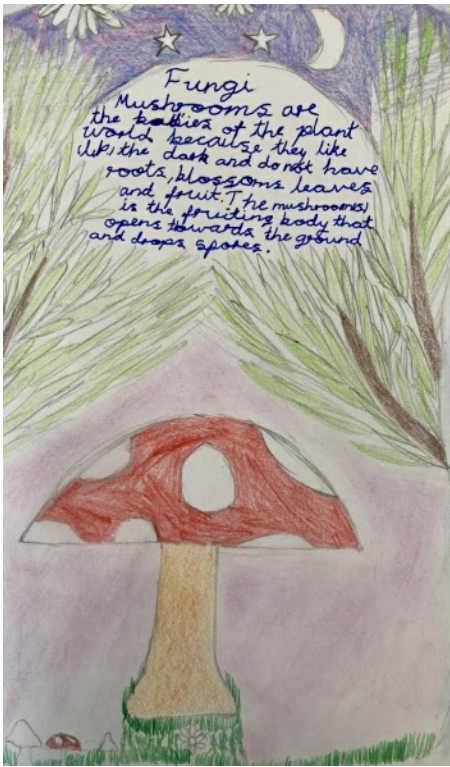 Fungi
Mushrooms are
the babies of the plant
world because they like
the dark and do not have
roots, blossoms leaves
and fruit. The mushrooms
is the fruiting body that
opens towards the ground
and drops spores.